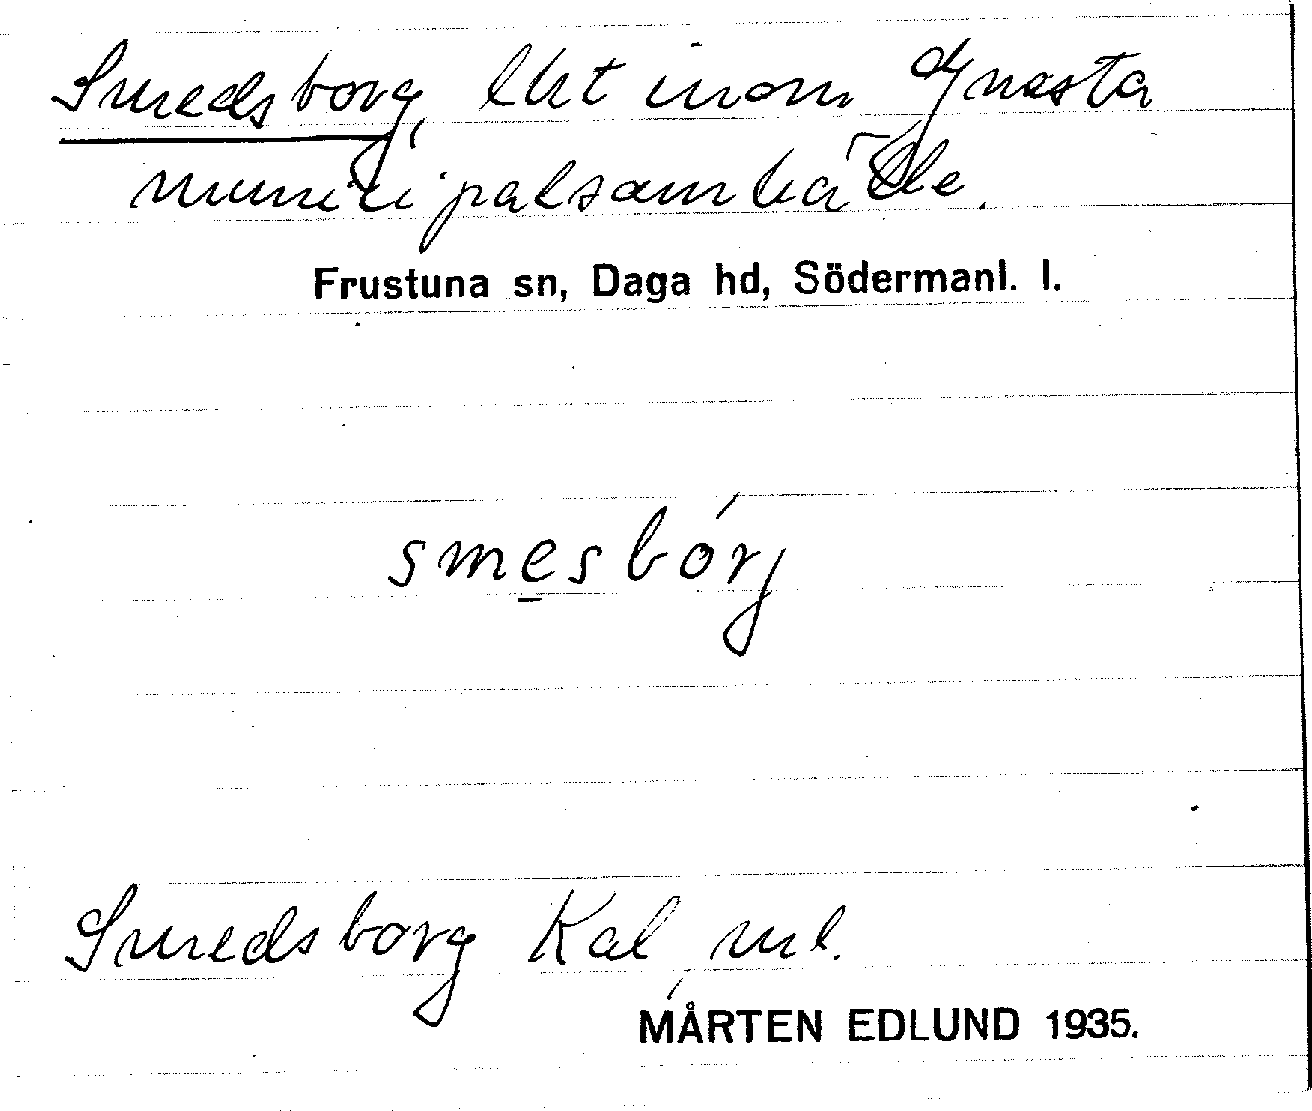 Smedsborg, lht inom Gnesta
municipalsamhälle.
Frustuna sn, Daga hd, Södermanl. l.
smesbórj
Smedsborg Kal, ml.
MÅRTEN EDLUND 1935.